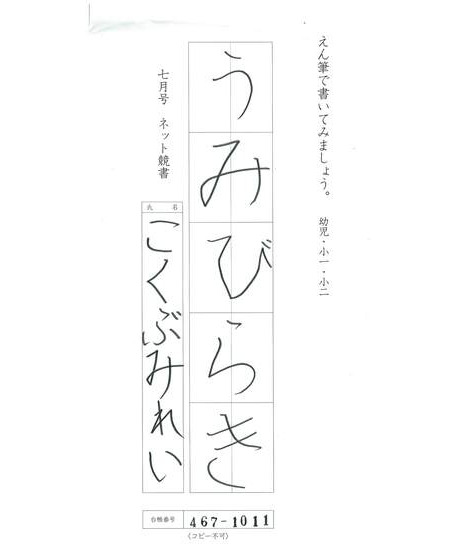 えん筆で書いてみましょう。 幼児・小一・小二
うみびらき
七月号 ネット競書
氏名
こくぶみれい
台帳番号 467-1011
〈コピー不可〉